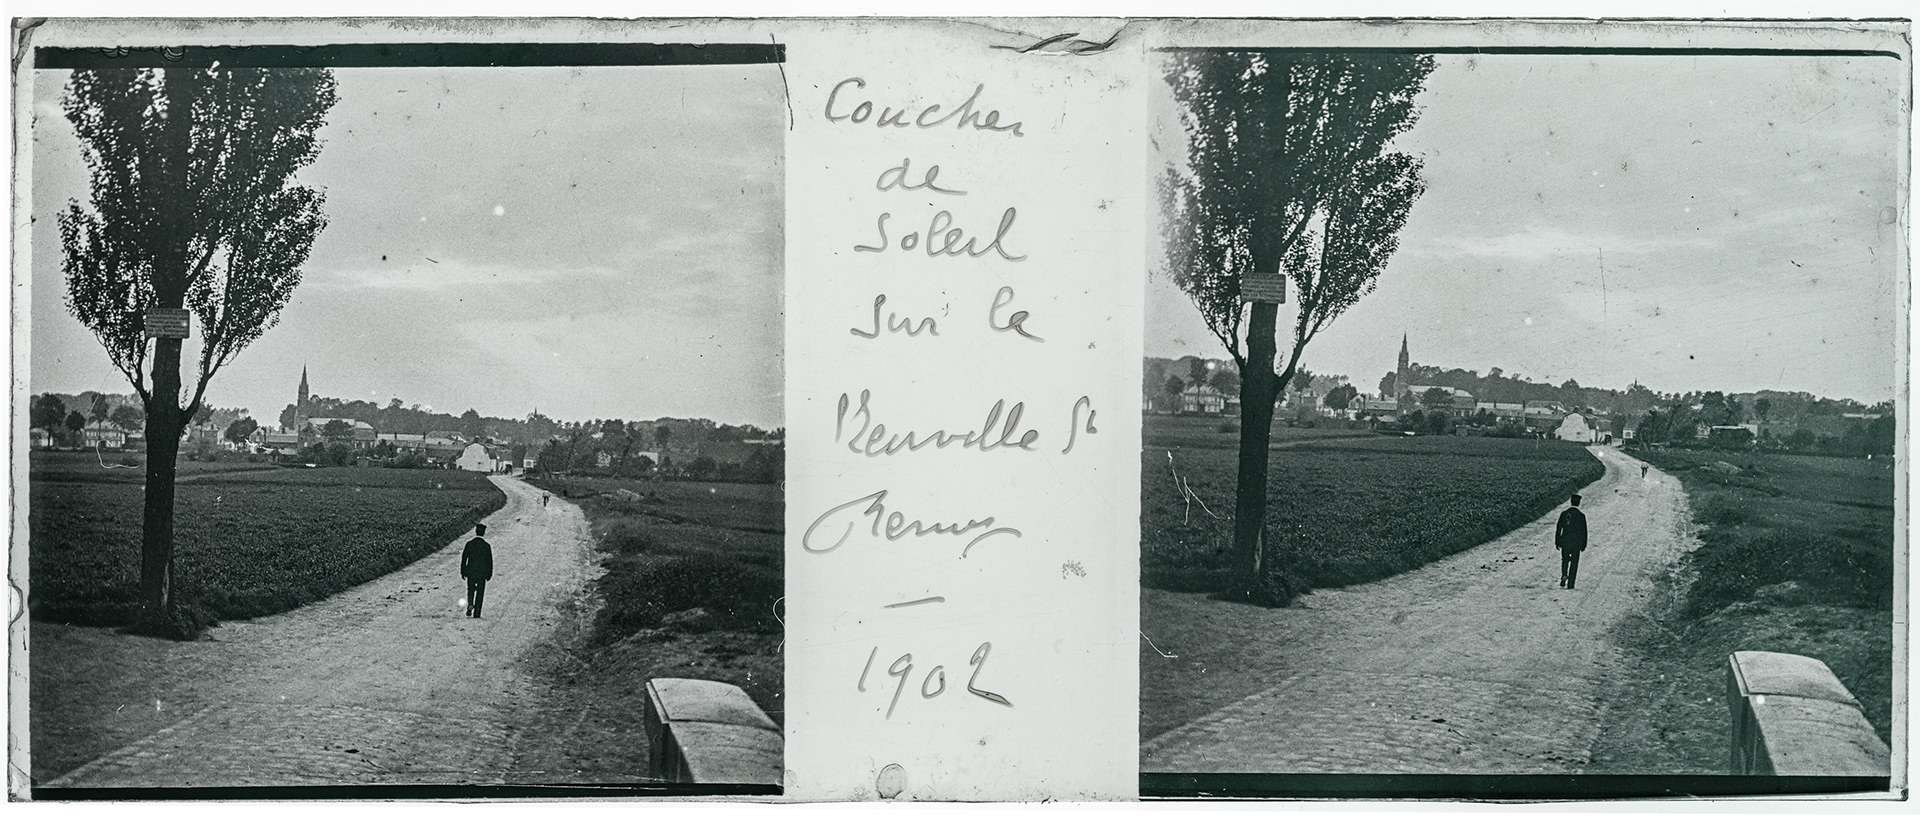 Coucher
de
Soleil
sur la
Neuville St
Remy
1902